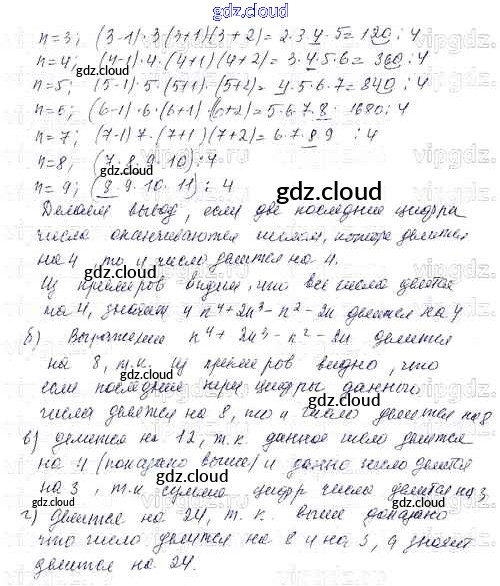 gdz.cloud
n=3; (3-1)·3·(3+1)(3+2)=2·3·4·5=120⋮4
n=4; (4-1)·4·(4+1)(4+2)=3·4·5·6=360⋮4
n=5; (5-1)·5·(5+1)·(5+2)=4·5·6·7=840⋮4
n=6; (6-1)·6·(6+1)·(6+2)=5·6·7·8=1680⋮4
n=7; (7-1)7·(7+1)(7+2)=6·7·8·9 ⋮4
n=8; (7·8·9·10)⋮4
n=9; (8·9·10·11)⋮4
Делаем вывод, если две последние цифры
числа оканчиваются числом, которое делится
на 4, то и число делится на 4.
Из примеров видим, что все числа делятся
на 4, значит и n⁴+2n³-n²-2n делится на 4
б) Выражение n⁴+2n³-n²-2n делится
на 8, т.к. из примеров видно, что
если последние три цифры данного
числа делятся на 8, то и число делится на 8
в) делится на 12, т.к. данное число делится
на 4 (показано выше) и данное число делится
на 3, т.к. сумма цифр числа делится на 3
г) делится на 24, т.к. выше доказано
что число делится на 8 и на 3, а значит
делится на 24.